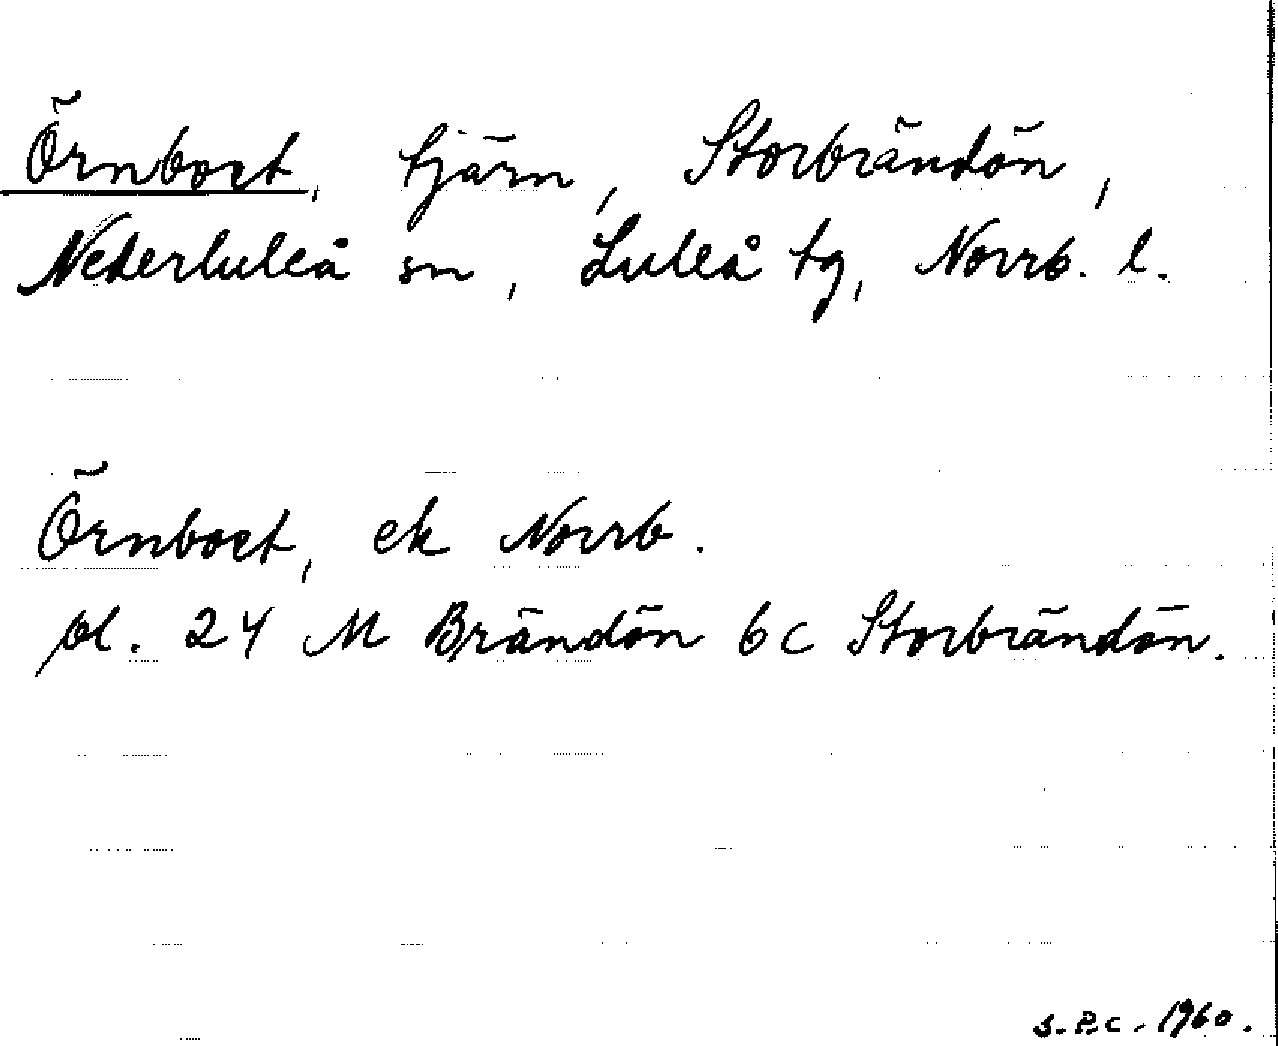 Örnboet, tjärn, Storbrändön,
Nederluleå sn, Luleå tg, Norrb. l.
Örnboet, ek Norrb.
bl. 24 M Brändön 6c Storbrändön.
S.P.C. 1960.